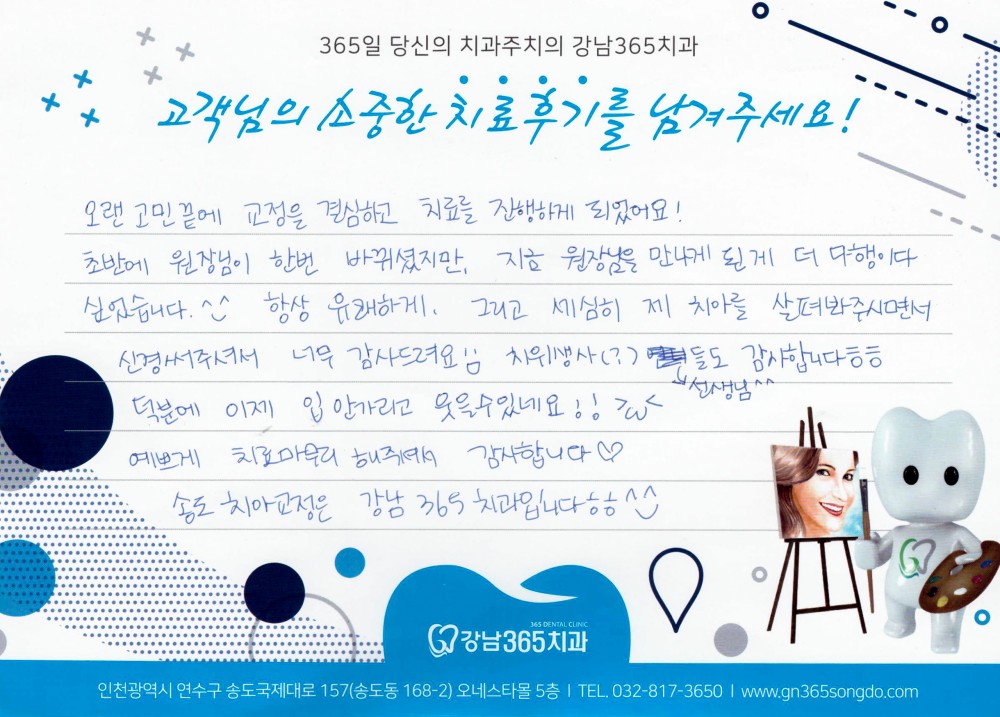 365일 당신의 치과주치의 강남365치과
고객님의 소중한 치료후기를 남겨주세요!
오랜 고민끝에 교정을 결심하고 치료를 진행하게 되었어요!
초반에 원장님이 한번 바뀌셨지만, 지금 원장님을 만나게 된게 더 다행이다
싶었습니다. ^^ 항상 유쾌하게, 그리고 세심히 제 치아를 살펴봐주시면서
신경써주셔서 너무 감사드려요!! 치위생사(?) 들도 감사합니다ㅎㅎ
선생님^^
덕분에 이제 입 안가리고 웃을수있네요!! >ω<
예쁘게 치료마무리 해주셔서 감사합니다♡
송도 치아교정은 강남 365 치과입니다ㅎㅎ^^
365 DENTAL CLINIC
강남365치과
인천광역시 연수구 송도국제대로 157(송도동 168-2) 오네스타몰 5층 | TEL. 032-817-3650 | www.gn365songdo.com